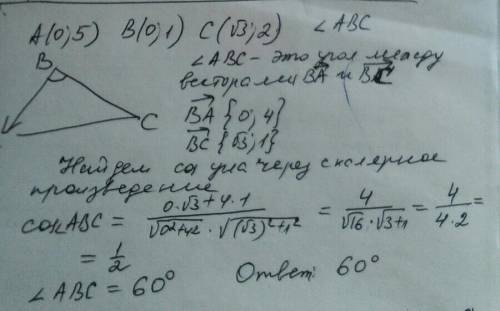 A(0;5) B(0;1) C(√3;2) ∠ABC
∠ABC - это угол между
векторами BA и BC
B
C
BA {0; 4}
BC {√3; 1}
Найдем cos угла через скалярное
произведение
cos ABC = (0·√3+4·1)/(√(0²+4²)·√((√3)²+1²)) = 4/(√16·√3+1) = 4/(4·2) =
= 1/2
∠ABC = 60° Ответ: 60°